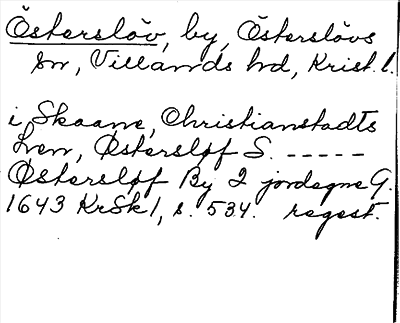 Österslöv, by, Österslövs
sn, Villands hd, Krist. l.
i Skaane, Christianstadts
Len, Østersløf S. -----
Østersløf By 2 jordegne G.
1643 KrSk 1, s. 534. regest.